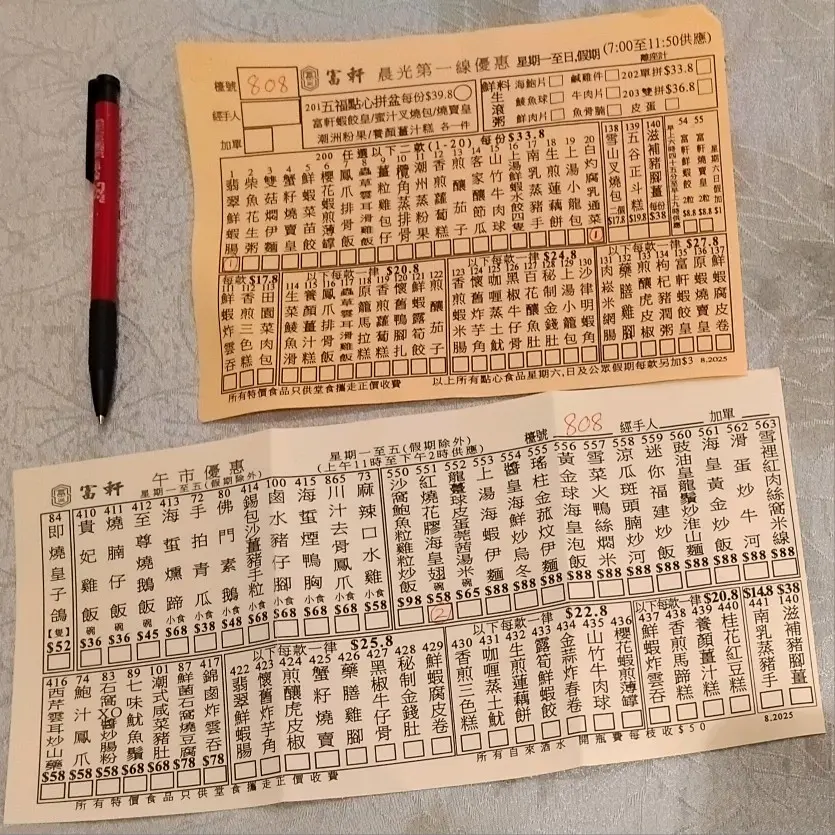 富軒 晨光第一線優惠 星期一至日,假期 (7:00至11:50供應)
離座計
檯號 808
經手人
加單
201 五福點心拼盆每份$39.8
富軒鮮蝦餃皇/蜜汁叉燒包/燒賣皇
潮洲粉果/養顏薑汁糕 各一件
鮮料生滾粥
海鮑片 鹹雞件 202單拼$33.8
鯪魚球 牛肉片 203雙拼$36.8
鮮肉片 魚骨腩 皮蛋
200 任選以下二款(1-20) 每份$33.8
1 翡翠鮮蝦腸 1
2 柴魚花生粥
3 雙菇燜伊麵
4 蟹籽燒賣皇
5 鮮蝦菜苗餃
6 櫻花蝦煎薄罉
7 鳳爪排骨飯
8 蟲草雲耳滑雞飯
9 薑粒雞包仔
10 欖角蒸排骨
11 潮州蒸粉果
12 香煎蘿蔔糕
13 煎釀茄子
14 客家釀節瓜
15 山竹牛肉球
16 上湯鮮蝦水餃四隻
17 南乳蒸豬手
18 生煎蓮藕餅
19 上湯小籠包
20 白灼腐乳通菜 1
138 雪山叉燒包 二個 $17.8
139 五谷正斗糕 $19.8
140 滋補豬腳薑 每份 $38
54 富軒鮮蝦餃 2粒 $8.8
55 富軒燒賣皇 2粒 $8.8
星期六日假加$1
每款$17.8
111 鮮蝦炸雲吞
112 香煎三色糕
113 田園菜肉包
以下每款一律 $20.8
114 生菜鯪魚滑
115 養顏薑汁糕
116 鳳爪排骨飯
117 蟲草雲耳滑雞飯
118 原籠馬拉糕
119 香煎蘿蔔糕
120 懷舊鴨腳扎
121 鮮蝦露筍餃
122 煎釀茄子
以下每款一律 $24.8
123 香煎蝦米腸
124 懷舊炸芋角
125 咖喱蒸土魷
126 黑椒牛仔骨
127 百花釀魚肚
128 秘制金錢肚
129 上湯小籠包
130 沙律明蝦角
以下每款一律 $27.8
131 肉崧米網腸
132 藥膳雞腳
133 煎釀虎皮椒
134 枸杞豬潤粥
135 富軒蝦餃皇
136 原隻蝦燒賣
137 鮮蝦腐皮卷
所有特價食品只供堂食攜走正價收費
以上所有點心食品星期六,日及公眾假期每款另加$3 8.2025
富軒 午市優惠
星期一至六(假期除外)
星期一至五(假期除外)
(上午11時至下午2時供應)
檯號 808 經手人 加單
84 即燒皇子鴿 【隻】 $52
410 貴妃雞飯 碗 $36
411 燒腩仔飯 碗 $36
412 至尊燒鵝飯 碗 $45
413 海蜇燻蹄 小食 $68
72 手拍青瓜 小食 $38
80 佛門素鵝 小食 $48
414 錫包沙薑豬手粒 小食 $68
100 鹵水豬仔腳 小食 $68
415 海蜇煙鴨胸 小食 $68
865 川汁去骨鳳爪 小食 $68
73 麻辣口水雞 小食 $58
550 沙窩鮑魚粒雞粒炒飯 $98
551 紅燒花膠海皇翅 碗 $58 2
552 龍躉球皮蛋莞茜湯米 碗 $65
553 上湯海蝦伊麵 $88
554 醬皇海鮮炒烏冬 $88
555 瑤柱金菰炆伊麵 $88
556 黃金球海皇泡飯 $88
557 雪菜火鴨絲燜米 $88
558 涼瓜斑頭腩炒河 $88
559 迷你福建炒飯 $88
560 豉油皇龍鬚炒淮山麵 $88
561 海皇黃金炒飯 $88
562 滑蛋炒牛河 $88
563 雪裡紅肉絲窩米線 $88
416 西芹雲耳炒山藥 $58
74 鮑汁鳳爪 $58
83 石窩XO醬炒腸粉 $58
89 七味魷魚鬚 $68
101 潮式咸菜豬肚 $68
87 鮮菌石窩燒豆腐 $78
417 錦鹵炸雲吞 $78
以下每款一律 $25.8
422 翡翠鮮蝦腸
423 懷舊炸芋角
424 煎釀虎皮椒
425 蟹籽燒賣
426 藥膳雞腳
427 黑椒牛仔骨
428 秘制金錢肚
429 鮮蝦腐皮卷
以下每款一律 $22.8
430 香煎三色糕
431 咖喱蒸土魷
432 生煎蓮藕餅
433 露筍鮮蝦餃
434 金蒜炸春卷
435 山竹牛肉球
436 櫻花蝦煎薄罉
以下每款一律 $20.8
437 鮮蝦炸雲吞
438 香煎馬蹄糕
439 養顏薑汁糕
440 桂花紅豆糕
$14.8
441 南乳蒸豬手
$38
140 滋補豬腳薑
所有特價食品只供堂食攜走正價收費
所有自來酒水 開瓶費每枝收$50 8.2025